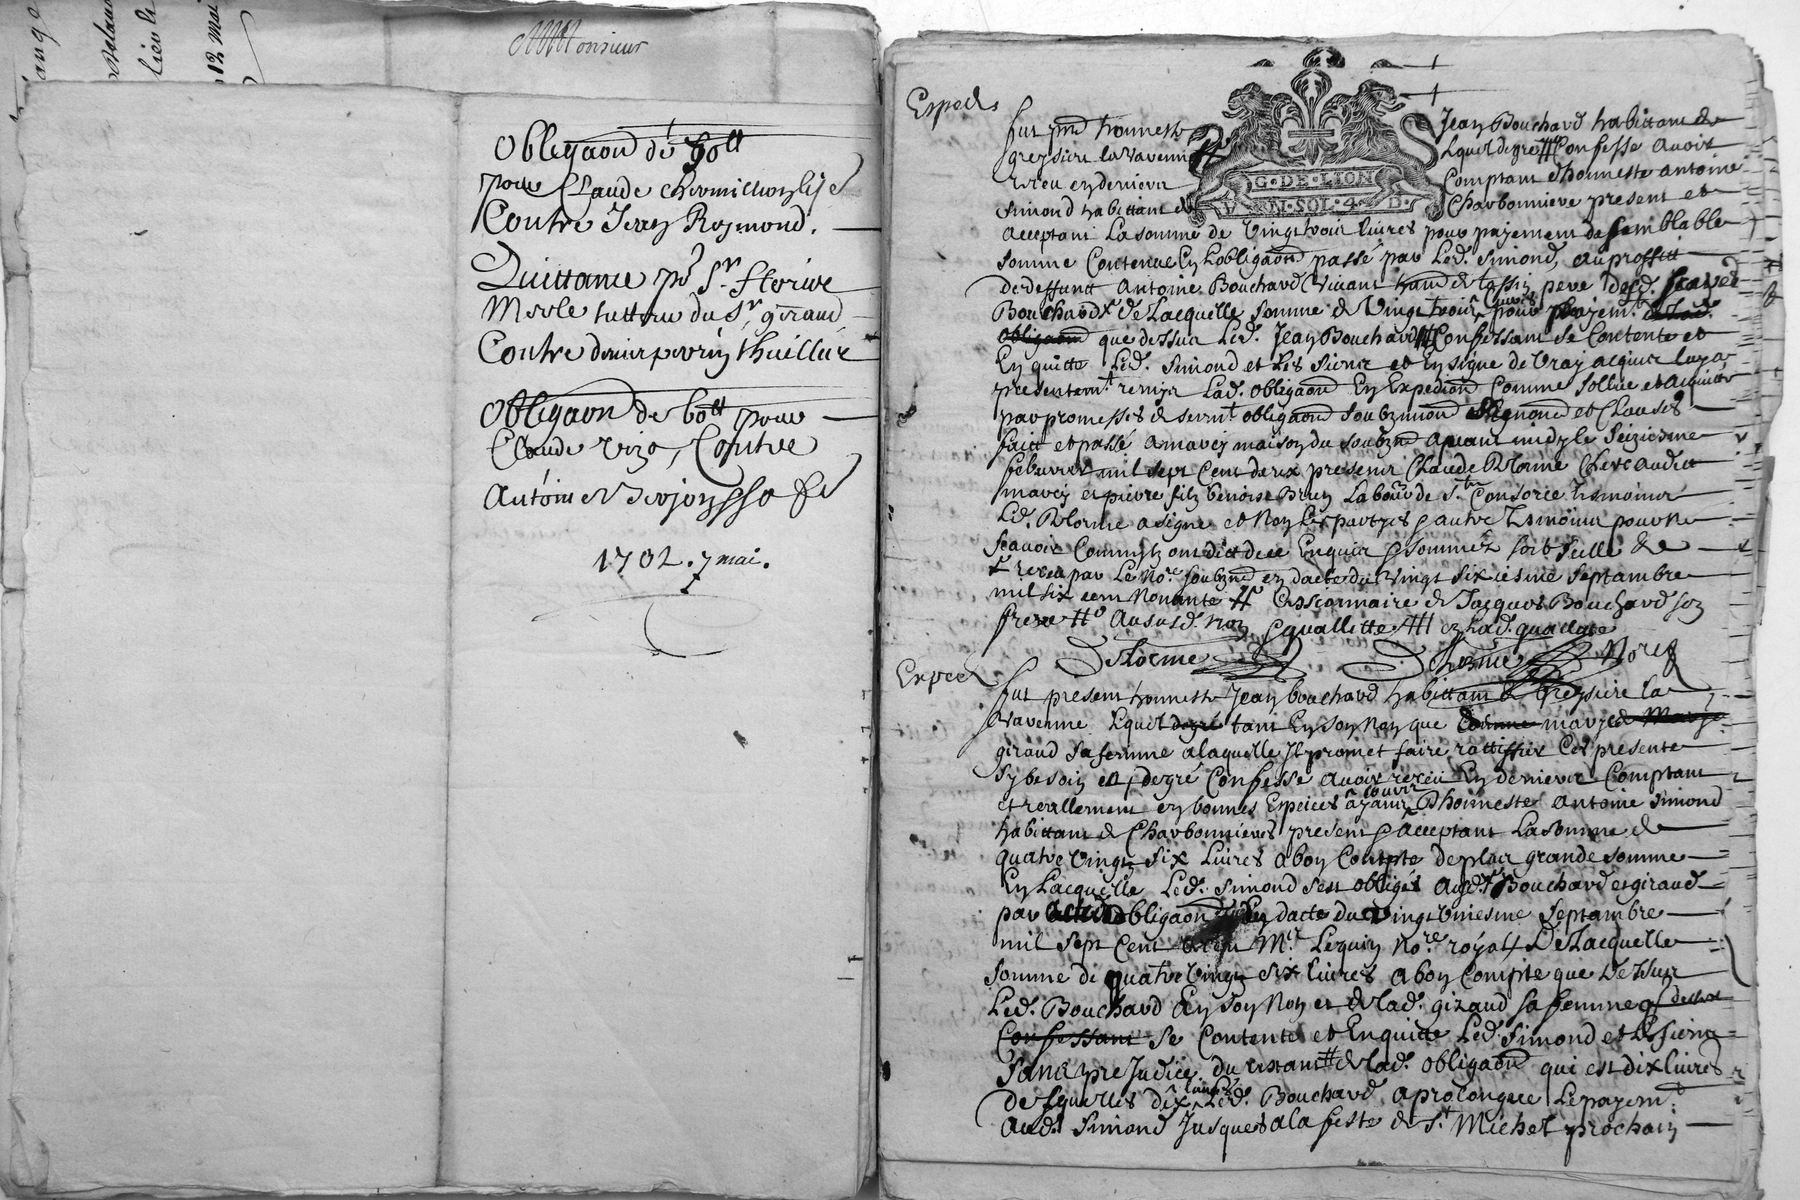 Monsieur
12 Mai
Obligaon de 80tt
pour Claude
Contre Jean Reymond.
Quittance pr Sr fleurie
Merle tutteur du Sr giraud
Contre denis perrin thuillier
Obligaon de 60tt pour
Claude Vize, Contre
Antoine Berjon
1702. 7 mai.
Exped
fut pnt honneste Jean Bouchard habittant de
greysieu la varenne Lquel degré Confesse avoir
receu en deniers Comptant dhonneste antoine
Simond habittant de Charbonniere present et
G·DE·LION
SOL·4·D·
acceptant La somme de Vingt trois livres pour payement de semblable
somme Contenue En Lobligaon passé par Led. Simond, au proffitt
de deffunct Antoine Bouchard Vivant hand de tassin pere dud. Jean
Bouchard de Lacquelle somme de Vingt trois livres pour payemt.
obligaon que dessus Led. Jean Bouchard Confessant se Contente et
En quitte Led. Simond et Les Siens et En signe de Vray acquit luy a
presentemt remis Lad. obligaon En Expedion Comme sollue et acquitté
par promesses & sermt obligaon soubzmion Renond et Clauses
faict et passé a marcy maison du soubznd avant midy le seiziesme
febvrier mil sept Cent dix presents Claude Delorme Clerc audit
marcy et pierre fils benoist Brun Laboureur de Ste Consorce tesmoins
Led. Delorme a signé et Non Les partyes & autre Tesmoin pour ne
scavoir Comme ilz ont dict de ce Enquis & sommez soit seellé &c
receu par Le Nore soubznd en datte du Vingt sixiesme septambre
mil six cent Nonante Cessionnaire de Jacques Bouchard son
frere Au susd. non & quallitte en lad. quallite
Delorme Delorme Nore
Exped
fut present honneste Jean bouchard habittant de greysieu la
varenne Lquel degré tant En son Non que Comme mary de Marye
giraud sa femme a laquelle Il promet faire rattiffier Ces presente
sy besoin est degré Confesse avoir receu En deniers Comptant
et reallement en bonnes Especes ayant Cours Dhonneste antoine Simond
habittant de Charbonnieres present & acceptant La somme de
quatre Vingt six Livres a bon Compte de plus grande somme
En Lacquelle Led. Simond sest obligés ausd. Bouchard et giraud
par obligaon en datte du Vingt Uniesme Septambre
mil sept Cent receu Mr. Lequin Nore royal De Lacquelle
somme de quatre Vingt six livres a bon Compte que Dessus
Led. Bouchard En son Non et de lad. giraud sa femme
Confessant se Contente et Enquitte Led. Simond et Les siens
Sans prejudice du restant de lad. obligaon qui est dix livres
desquelles dix livres Led. Bouchard a prolongue Le payemt.
aud. Simond Jusques a la feste de St. Michel prochain